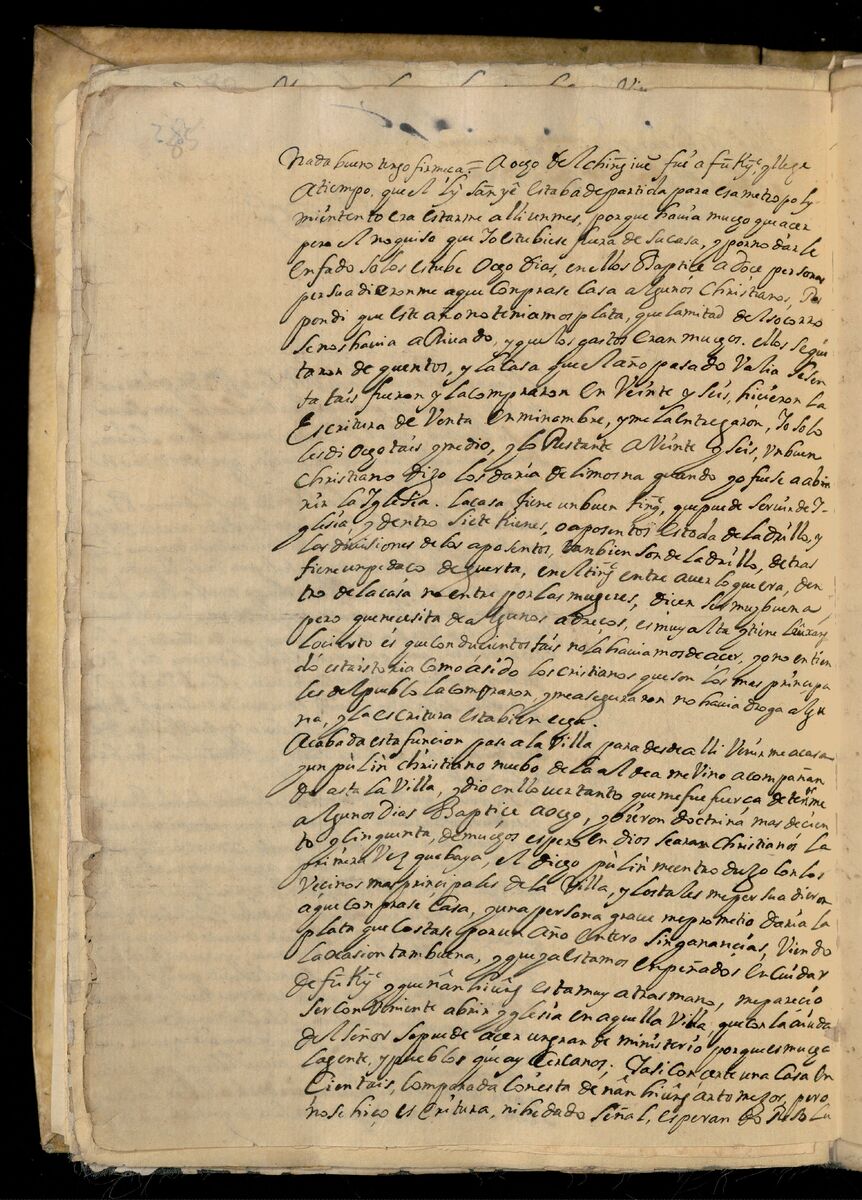 285
Nada bueno tengo firmeca. = A ocgo del chiñg iuĕ fué a fũ Kỹ, y llege
a tiempo, que el lỹ Sañ yĕ estaba de partida para esa metropoly
mi intento era estarme alli un mes, porque havia mucgo que acer
pero el no quiso que Io estubiese fuera de su casa, y por no dar le
enfado solos estube Ocgo Dias, en ellos Baptice a doce personas
persuadieronme a que comprase Casa algunos Christianos, Res
pondi que este año no teniamos plata, que la mitad del socorro
se nos havia a Rivado, y que los gastos eran mucgos. ellos se qui
taron de quentos, y la casa que el año pasado Valia sesen
ta tais fueron y la compraron en Veinte y seis, hicieron la
Escritura de Venta en mi nombre, y me la entregaron, Io solo
les di Ocgo tais y medio, y lo Restante a Veinte y seis, un buen
Christiano Digo los daria de limosna quando yo fuese a abi
rir la Iglesia. la casa tiene un buen tiñg, que puede servir de I-
glesia, y dentro siete kienes, o aposentos es toda de ladrillo, y
las divisiones de los aposentos, tambien son de ladrillo, detras
tiene un pedaço de guerta, en el tiñg entre a ver lo que era, den
tro de la casa no entre por las mugeres, dicen ser muy buena
pero que necesita de algunos adreços, es muy alta y tiene
lo cierto és que con ducientos tais no la haviamos de acer, yo no entien
do esta istoria como a sido los cristianos que son los mas principa
les del pueblo la compraron, y me aseguraron no havia droga algu
na, y la escritura esta bien ecga.
Acabada esta funcion pase a la Villa para desde alli Venirme a casa
y un pù lin christiano nuebo de la aldea me Vino acompañan
do asta la Villa, y dio en llover tanto que me fue fuerça detenerme
algunos Dias Baptice a ocgo, y oieron doctrina mas de cien
to y cinquenta, de mucgos espero en Dios searan Christianos la
primera Vez que baya, el Diego pù lin me introduzo con los
Vecinos mas principales de la Villa, y los tales me persuadieron
a que comprase Casa, y una persona grave me prometio daria la
plata que costase por un año entero sin ganancias, Viendo
la ocasion tan buena, y que ya estamos empeñados en cuidar
de fũ Kỹ y que nân hiûng esta muy a trasmano, me pareció
ser conveniente abrir yglesia en aquella Villa, que con la aiuda
del Señor se puede acer un gran de ministerio porque es mucga
la gente, y pueblos que ay cercanos; I asi concerte una Casa en
Cien tais, comparada con esta de nân hiûng a nto mejor, pero
no se hiço escritura, ni he dado señal, esperando Resolu